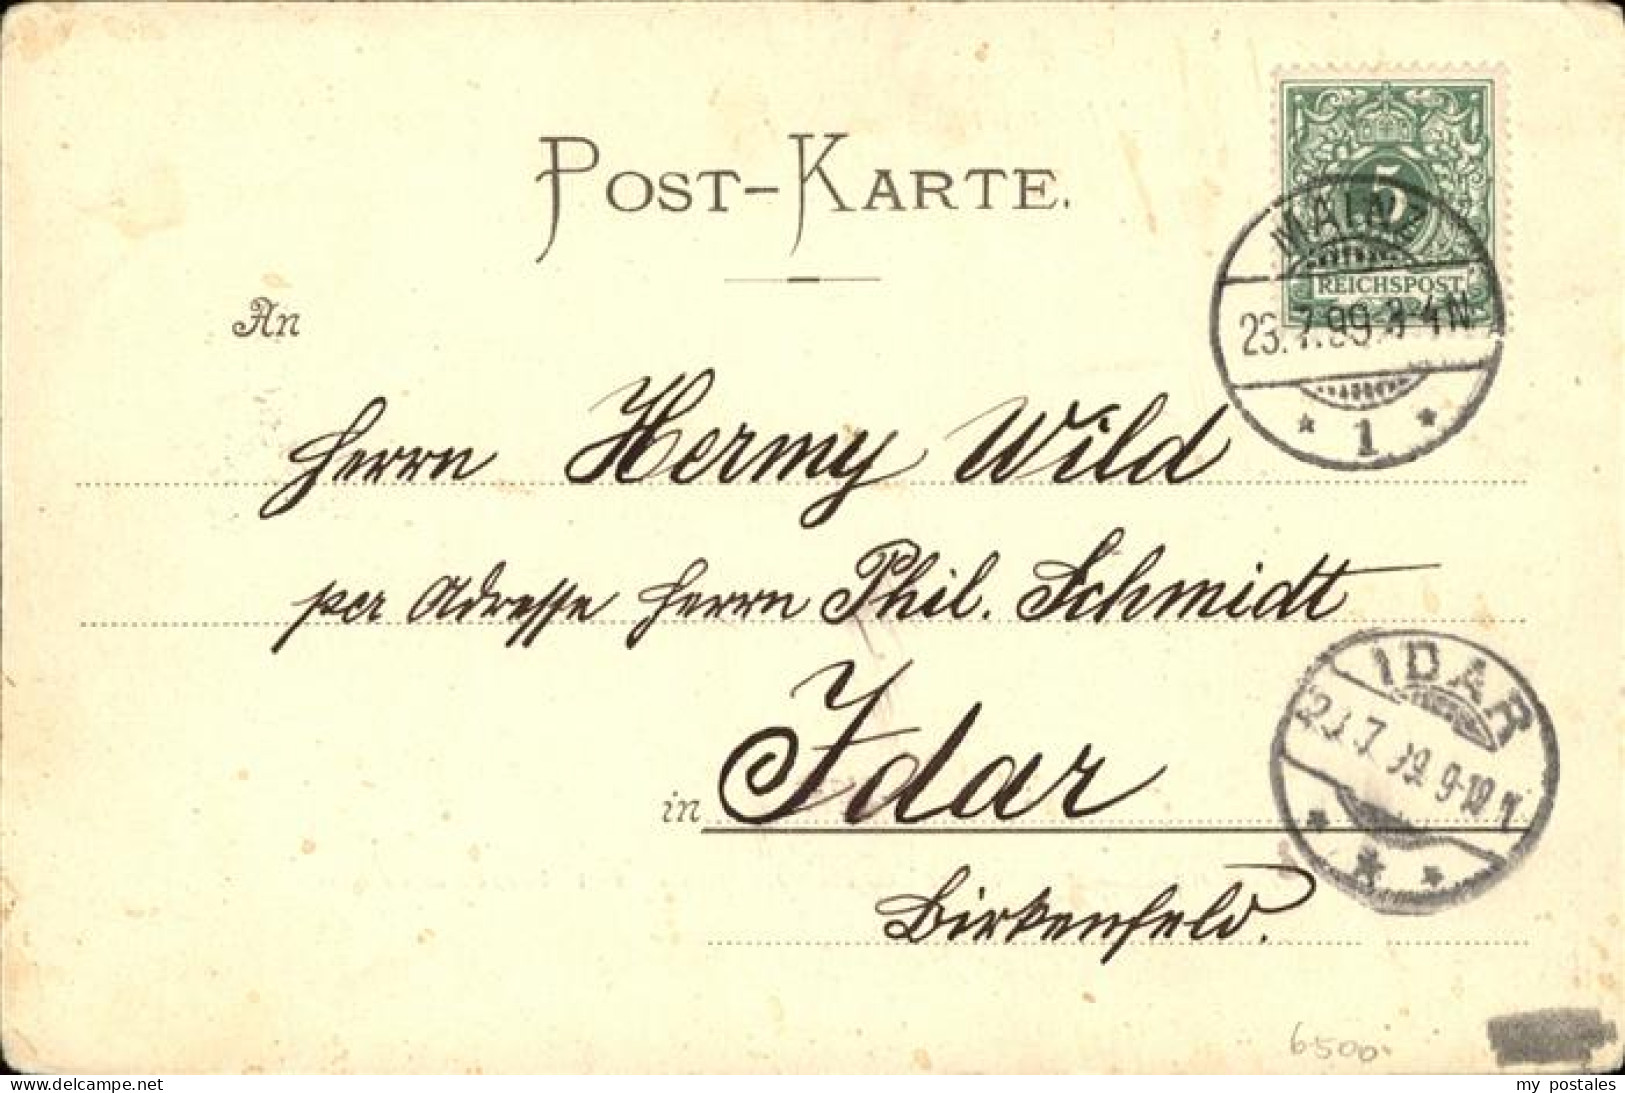 POST-KARTE.
5
REICHSPOST
MAINZ
23.7.99.3-4N
* 1 *
An
Herrn Hermy Wild
per Adresse Herrn Phil. Schmidt
in Idar
Birkenfeld.
IDAR
23.7.99.
6500.-
delcampe.net
my postales